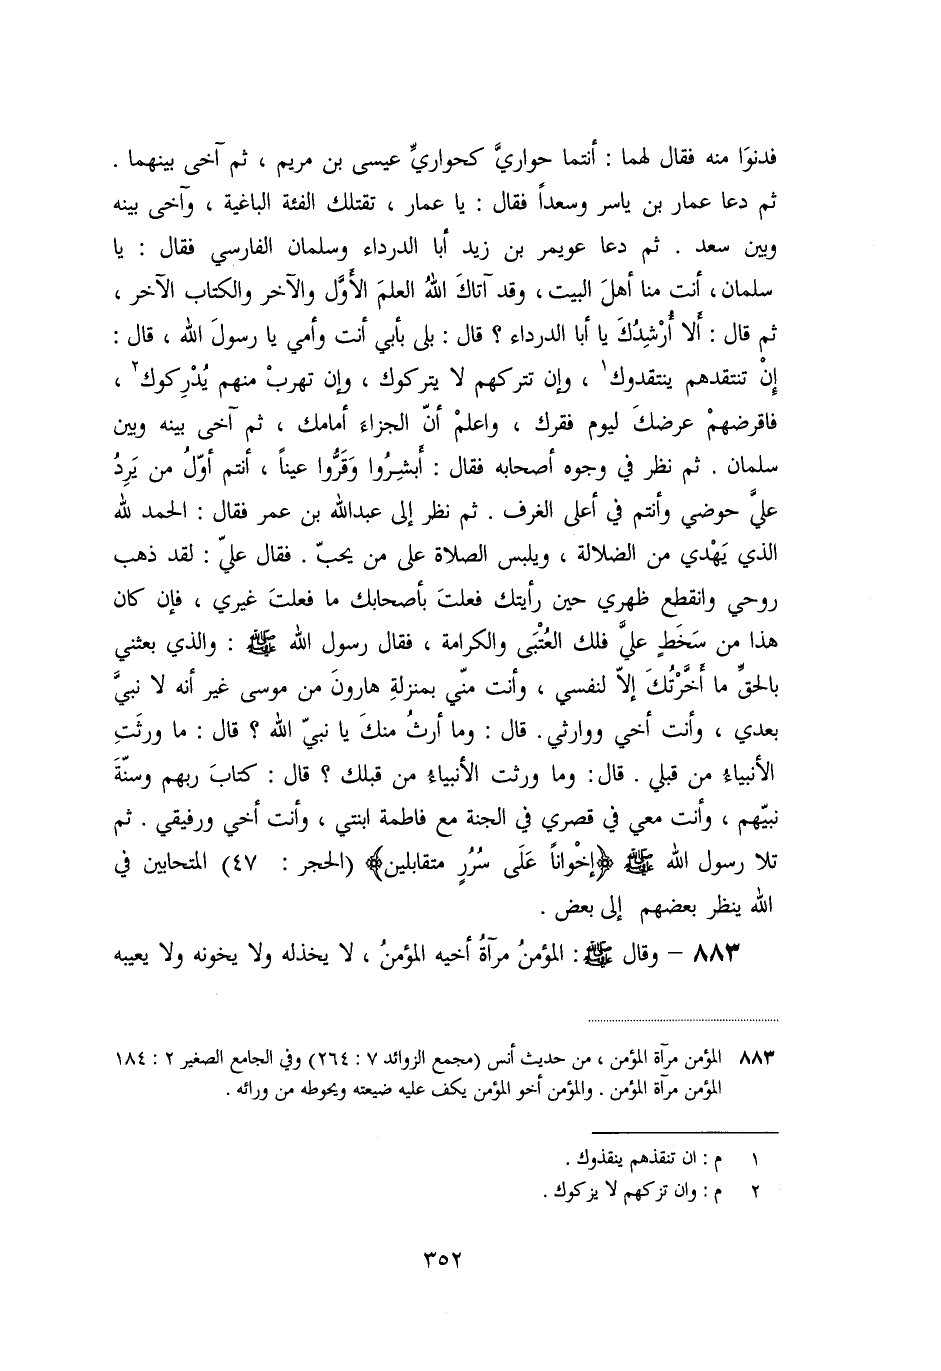 فدنوَا منه فقال لهما : أنتما حواريَّ كحواريِّ عيسى بن مريم ، ثم آخى بينهما .
ثم دعا عمار بن ياسر وسعداً فقال : يا عمار ، تقتلك الفئة الباغية ، وآخى بينه
وبين سعد . ثم دعا عويمر بن زيد أبا الدرداء وسلمان الفارسي فقال : يا
سلمان ، أنت منا أهلَ البيت ، وقد آتاكَ اللهُ العلمَ الأَوَّل والآخر والكتاب الآخر ،
ثم قال : أَلا أُرْشِدُكَ يا أبا الدرداء ؟ قال : بلى بأبي أنت وأمي يا رسولَ الله ، قال :
إِنْ تنتقدهم ينتقدوك١ ، وإن تتركهم لا يتركوك ، وإن تهربْ منهم يُدْرِكوك٢ ،
فاقرضهمْ عرضكَ ليوم فقرك ، واعلمْ أنّ الجزاءَ أمامك ، ثم آخى بينه وبين
سلمان . ثم نظر في وجوه أصحابه فقال : أَبشِرُوا وَقَرُّوا عيناً ، أنتم أوّلُ من يَرِدُ
عليَّ حوضي وأنتم في أعلى الغرف . ثم نظر إلى عبدالله بن عمر فقال : الحمد لله
الذي يَهْدي من الضلالة ، ويلبس الصلاة على من يحبّ . فقال عليّ : لقد ذهب
روحي وانقطع ظهري حين رأيتك فعلتَ بأصحابك ما فعلتَ غيري ، فإن كان
هذا من سَخَطٍ عليَّ فلك العُتْبَى والكرامة ، فقال رسول الله ﷺ : والذي بعثني
بالحقِّ ما أَخَّرْتُكَ إلاّ لنفسي ، وأنت منّي بمنزلةِ هارونَ من موسى غير أنه لا نبيَّ
بعدي ، وأنت أخي ووارثي . قال : وما أرثُ منكَ يا نبيّ الله ؟ قال : ما ورثَتِ
الأنبياءُ من قبلي . قال : وما ورثت الأنبياءُ من قبلك ؟ قال : كتابَ ربهم وسنّةَ
نبيّهم ، وأنت معي في قصري في الجنة مع فاطمة ابنتي ، وأنت أخي ورفيقي . ثم
تلا رسول الله ﷺ ﴿إخْواناً عَلَى سُرُرٍ متقابلين﴾ (الحجر : ٤٧) المتحابين في
الله ينظر بعضهم إلى بعض .
٨٨٣ – وقال ﷺ : المؤمنُ مرآةُ أخيه المؤمنُ ، لا يخذله ولا يخونه ولا يعيبه
٨٨٣ المؤمن مرآة المؤمن ، من حديث أنس (مجمع الزوائد ٧ : ٢٦٤) وفي الجامع الصغير ٢ : ١٨٤
المؤمن مرآة المؤمن . والمؤمن أخو المؤمن يكف عليه ضيعته ويحوطه من ورائه .
١ م : ان تنقذهم ينقذوك .
٢ م : وان تزكهم لا يزكوك .
٣٥٢